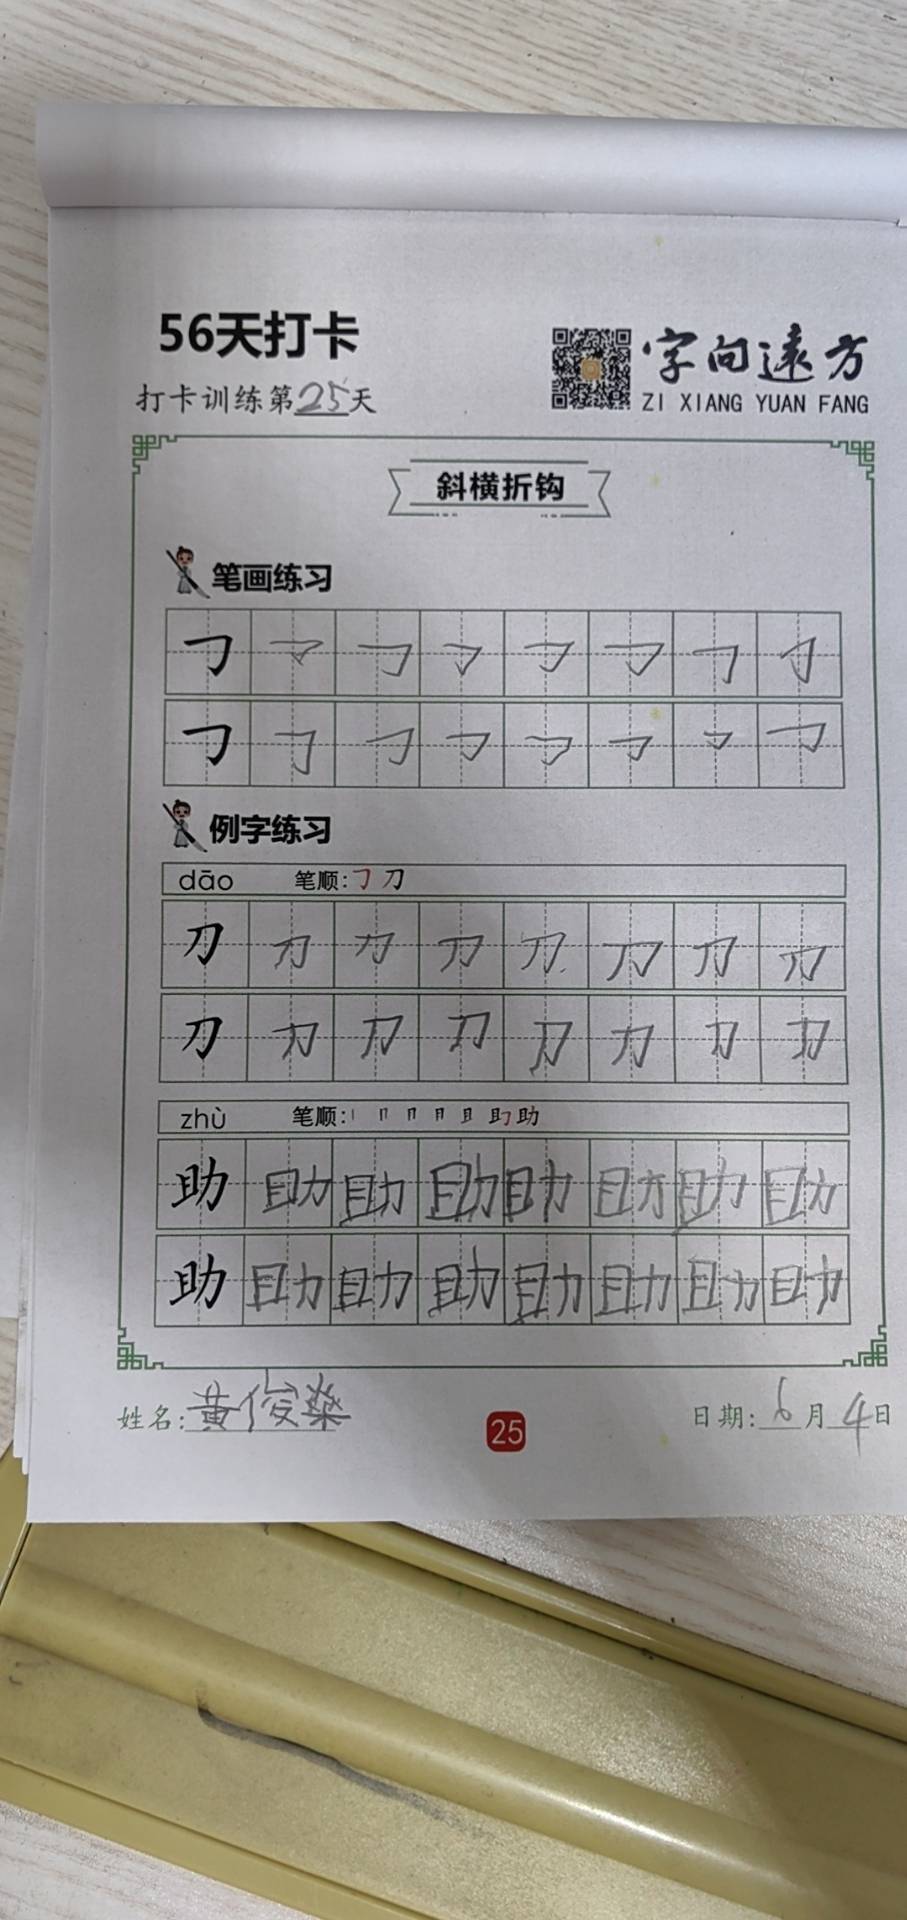 56天打卡
打卡训练第25天
字向远方
ZI XIANG YUAN FANG
斜横折钩
笔画练习
㇆ ㇆ ㇆ ㇆ ㇆ ㇆ ㇆ ㇆
㇆ ㇆ ㇆ ㇆ ㇆ ㇆ ㇆ ㇆
例字练习
dāo 笔顺:㇆ 刀
刀 刀 刀 刀 刀 刀 刀 刀
刀 刀 刀 刀 刀 刀 刀 刀
zhù 笔顺: 助
助 助 助 助 助 助 助 助
助 助 助 助 助 助 助 助
姓名:黄俊燊
25
日期:6月4日